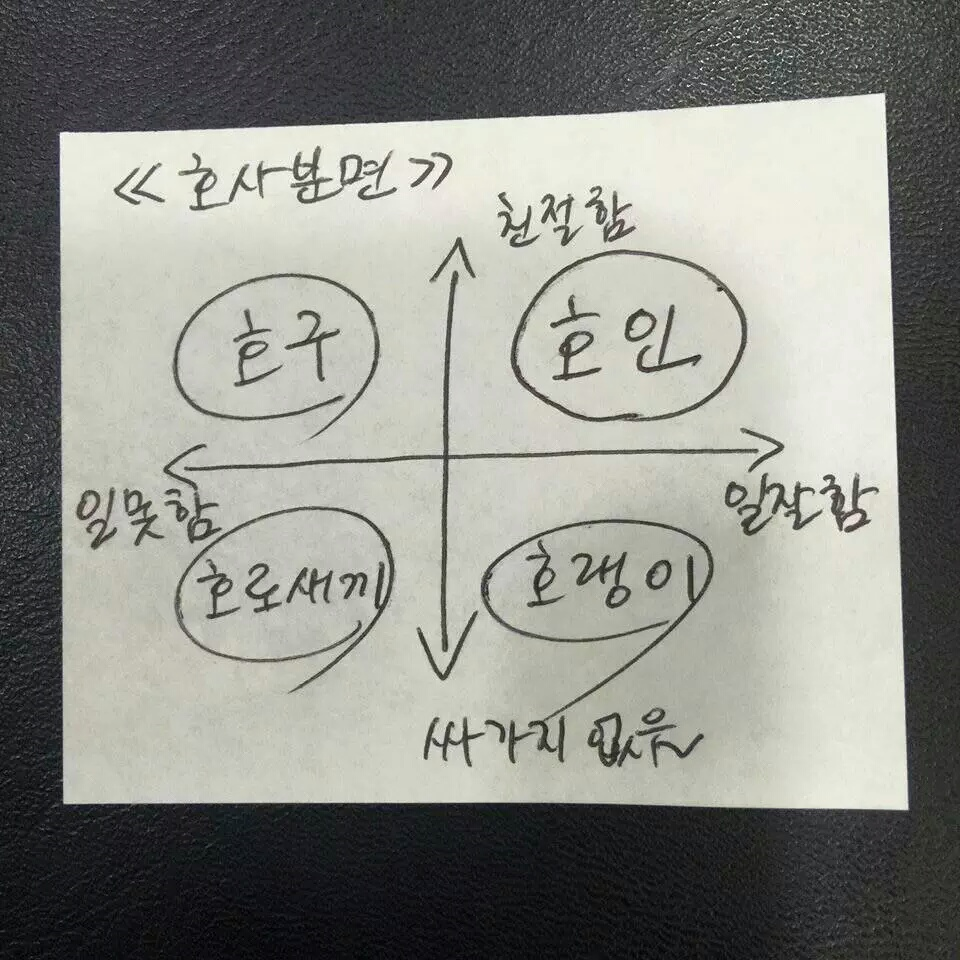 ≪호사분면≫
친절함
호구
호인
일못함
일잘함
호로새끼
호랭이
싸가지 없음